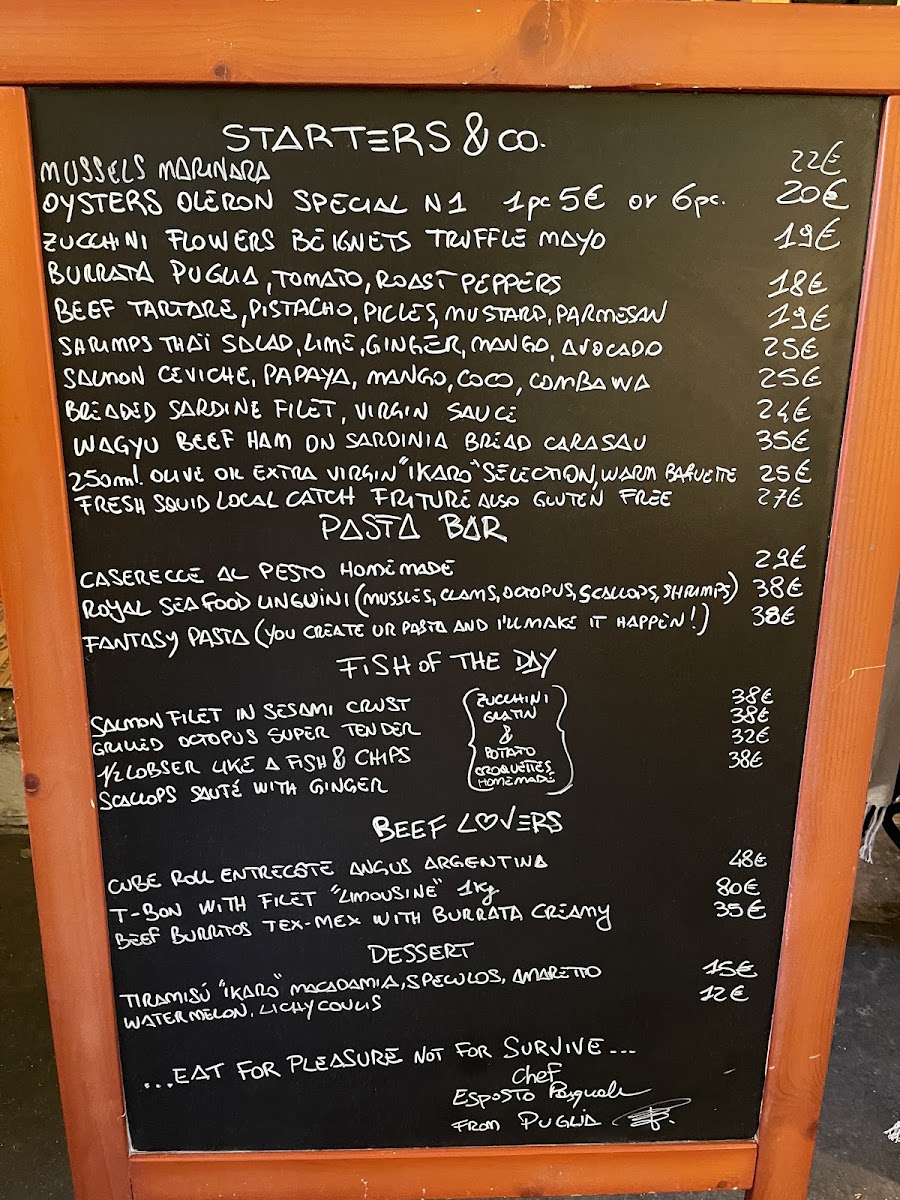 STARTERS & CO.
MUSSELS MARINARA 22€
OYSTERS OLERON SPECIAL N1 1pc 5€ or 6pc. 20€
ZUCCHINI FLOWERS BEIGNETS TRUFFLE MAYO 19€
BURRATA PUGLIA, TOMATO, ROAST PEPPERS 18€
BEEF TARTARE, PISTACHO, PICLES, MUSTARD, PARMESAN 19€
SHRIMPS THAÏ SALAD, LIME, GINGER, MANGO, AVOCADO 25€
SALMON CEVICHE, PAPAYA, MANGO, COCO, COMBAWA 25€
BREADED SARDINE FILET, VIRGIN SAUCE 24€
WAGYU BEEF HAM ON SARDINIA BREAD CARASAU 35€
250ml. OLIVE OIL EXTRA VIRGIN "IKARO" SELECTION, WARM BAGUETTE 25€
FRESH SQUID LOCAL CATCH FRITURE ALSO GLUTEN FREE 27€
PASTA BAR
CASERECCE AL PESTO HOMEMADE 29€
ROYAL SEAFOOD LINGUINI (MUSSLES, CLAMS, OCTOPUS, SCALLOPS, SHRIMPS) 38€
FANTASY PASTA (YOU CREATE UR PASTA AND I'LL MAKE IT HAPPEN!) 38€
FISH OF THE DAY
SALMON FILET IN SESAMI CRUST 38€
GRILLED OCTOPUS SUPER TENDER 38€
1/2 LOBSER LIKE A FISH & CHIPS 32€
SCALLOPS SAUTÉ WITH GINGER 38€
ZUCCHINI
GRATIN
&
POTATO
CROQUETTES
HOMEMADE
BEEF LOVERS
CUBE ROLL ENTRECOTE ANGUS ARGENTINA 48€
T-BON WITH FILET "LIMOUSINE" 1kg 80€
BEEF BURRITOS TEX-MEX WITH BURRATA CREAMY 35€
DESSERT
TIRAMISÚ "IKARO" MACADAMIA, SPECULOS, AMARETTO 15€
WATERMELON, LICHY COULIS 12€
...EAT FOR PLEASURE NOT FOR SURVIVE...
Chef
ESPOSTO Pasquale
FROM PUGLIA